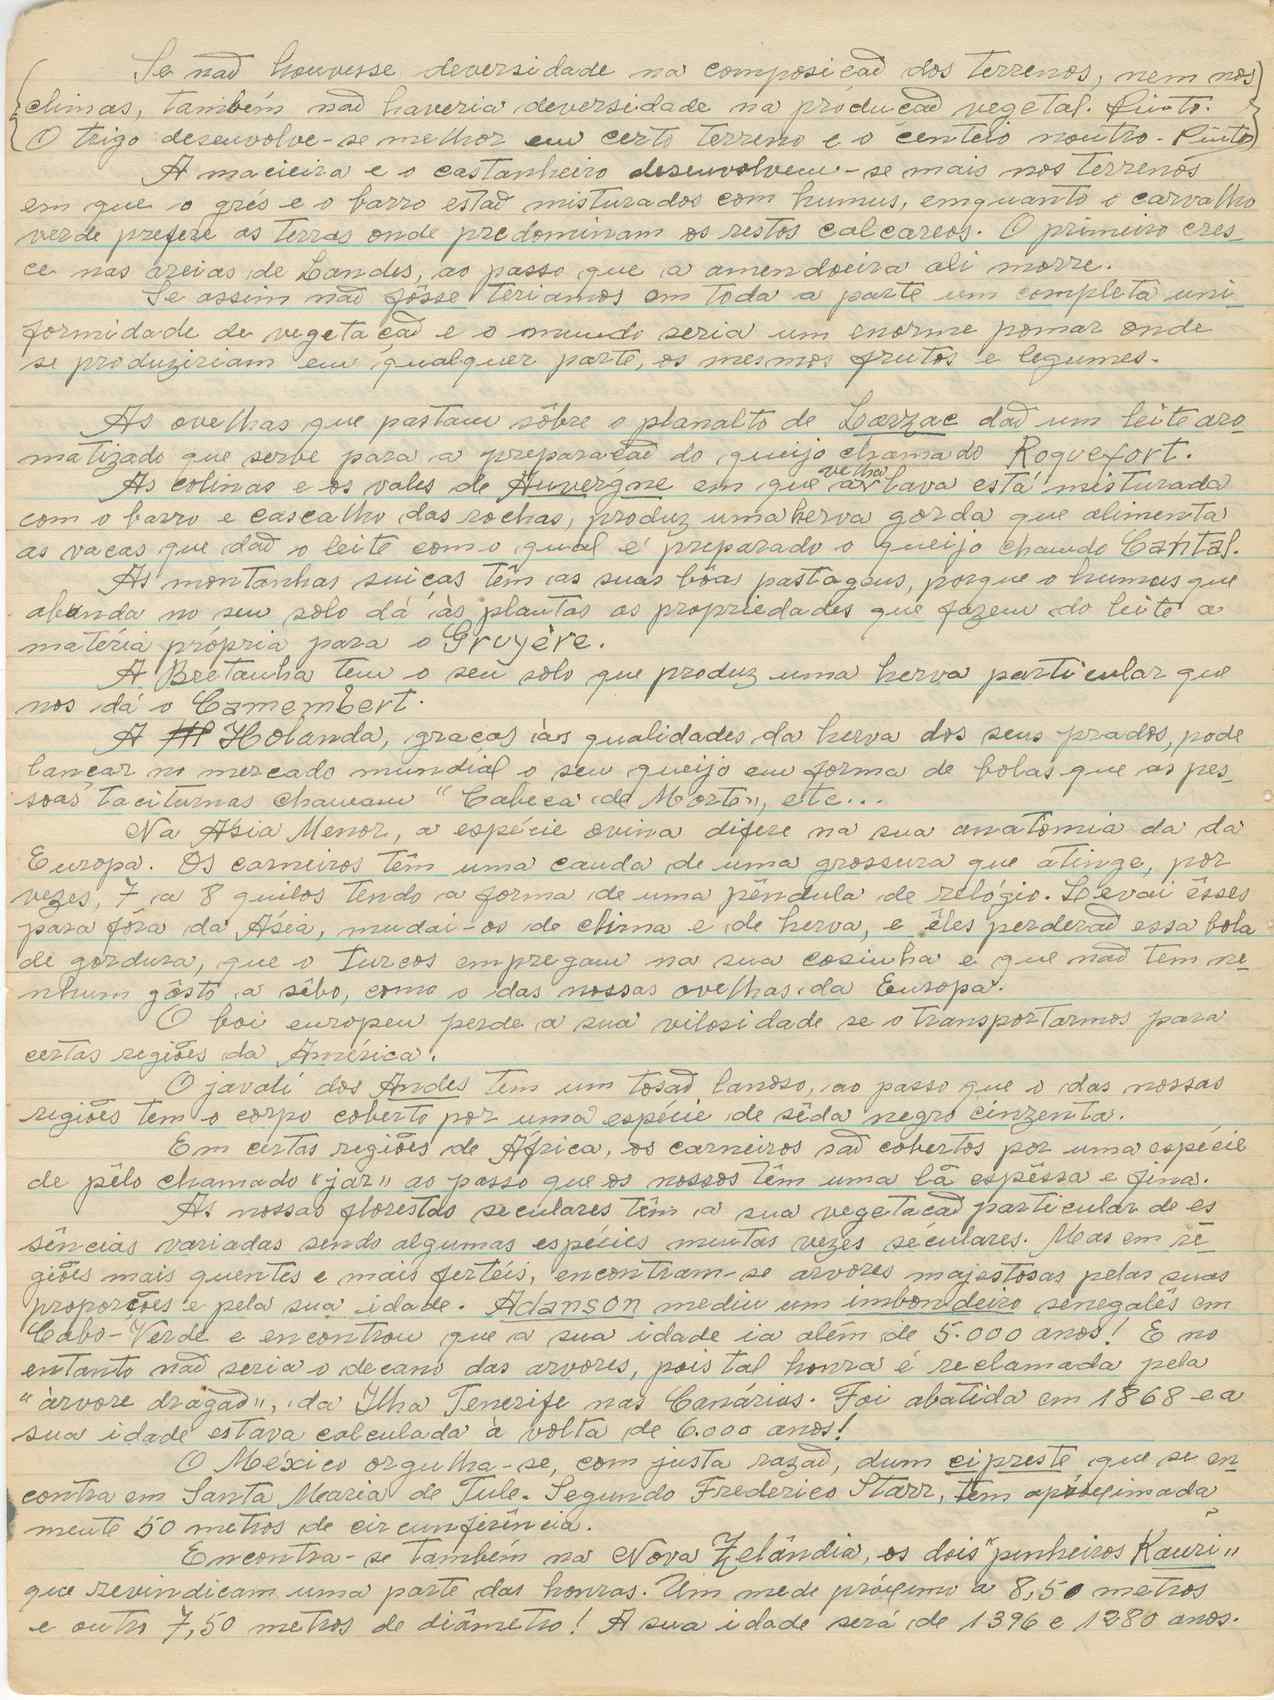 Se não houvesse deversidade na composicão dos terrenos, nem nos
climas, também não haveria deversidade na producão vegetal. Pinto.
O trigo desenvolve-se melhor em certo terreno e o centeio noutro - Pinto
A macieira e o castanheiro desenvolvem-se mais nos terrenos
em que o grés e o barro estão misturados com humus, emquanto o carvalho
verde prefere as terras onde predominam os restos calcareos. O primeiro cres-
ce nas areias de Landes, ao passo que a amendoeira ali morre.
Se assim não fôsse teriamos em toda a parte um completa uni-
formidade de vegetacão e o mundo seria um enorme pomar onde
se produziriam em qualquer parte, os mesmos frutos e legumes.
As ovelhas que pastam sôbre o planalto de Larzac dão um leite aro-
matizado que serve para a preparacão do queijo chamado Roquefort.
As colinas e os vales de Auvergne em que a velha lava está misturada
com o barro e cascalho das rochas, produz uma herva gorda que alimenta
as vacas que dão o leite com o qual é preparado o queijo chamdo Cantal.
As montanhas suicas têm as suas bôas pastagens, porque o humus que
abunda no seu solo dá às plantas as propriedades que fazem do leite a
matéria própria para o Gruyère.
A Bretanha tem o seu solo que produz uma herva particular que
nos dá o Camembert.
A Holanda, gracas às qualidades da herva dos seus prados, pode
lancar no mercado mundial o seu queijo em forma de bolas que as pes-
soas taciturnas chamam "Cabeca de Morto", etc...
Na Ásia Menor, a espécie ovina difere na sua anatomia da da
Europa. Os carneiros têm uma cauda de uma grossura que atinge, por
vezes, 7 a 8 quilos tendo a forma de uma pêndula de relógio. Levai êsses
para fóra da Ásia, mudai-os de clima e de herva, e êles perderão essa bola
de gordura, que o Turcos empregam na sua cosinha e que não tem ne-
nhum gôsto a sêbo, como o das nossas ovelhas da Europa.
O boi europeu perde a sua vilosidade se o transportarmos para
certas regiões da América.
O javali dos Andes tem um tosão lanoso, ao passo que o das nossas
regiões tem o corpo coberto por uma espécie de sêda negro cinzenta.
Em certas regiões de Africa, os carneiros são cobertos por uma espécie
de pêlo chamado "jar" ao passo que os nossos têm uma lã espêssa e fina.
As nossas florestas seculares têm a sua vegetacão particular de es
sências variadas sendo algumas espécies muitas vezes séculares. Mas em re-
giões mais quentes e mais fertéis, encontram-se arvores majestosas pelas suas
proporções e pela sua idade. Adanson mediu um imbondeiro senegalês em
Cabo-Verde e encontrou que a sua idade ia além de 5.000 anos! E no
entanto não seria o decano das arvores, pois tal honra é reclamada pela
"àrvore dragão", da Ilha Tenerife nas Canárias. Foi abatida em 1868 e a
sua idade estava calculada à volta de 6.000 anos!
O México orgulha-se, com justa razão, dum cipreste que se en-
contra em Santa Maria de Tule. Segundo Frederico Starr, tem apróximada
mente 50 metros de circunferência.
Encontra-se também na Nova Zelândia, os dois "pinheiros Kauri"
que revindicam uma parte das honras. Um mede próximo a 8,50 metros
e outro 7,50 metros de diâmetro! A sua idade será de 1396 e 1280 anos.